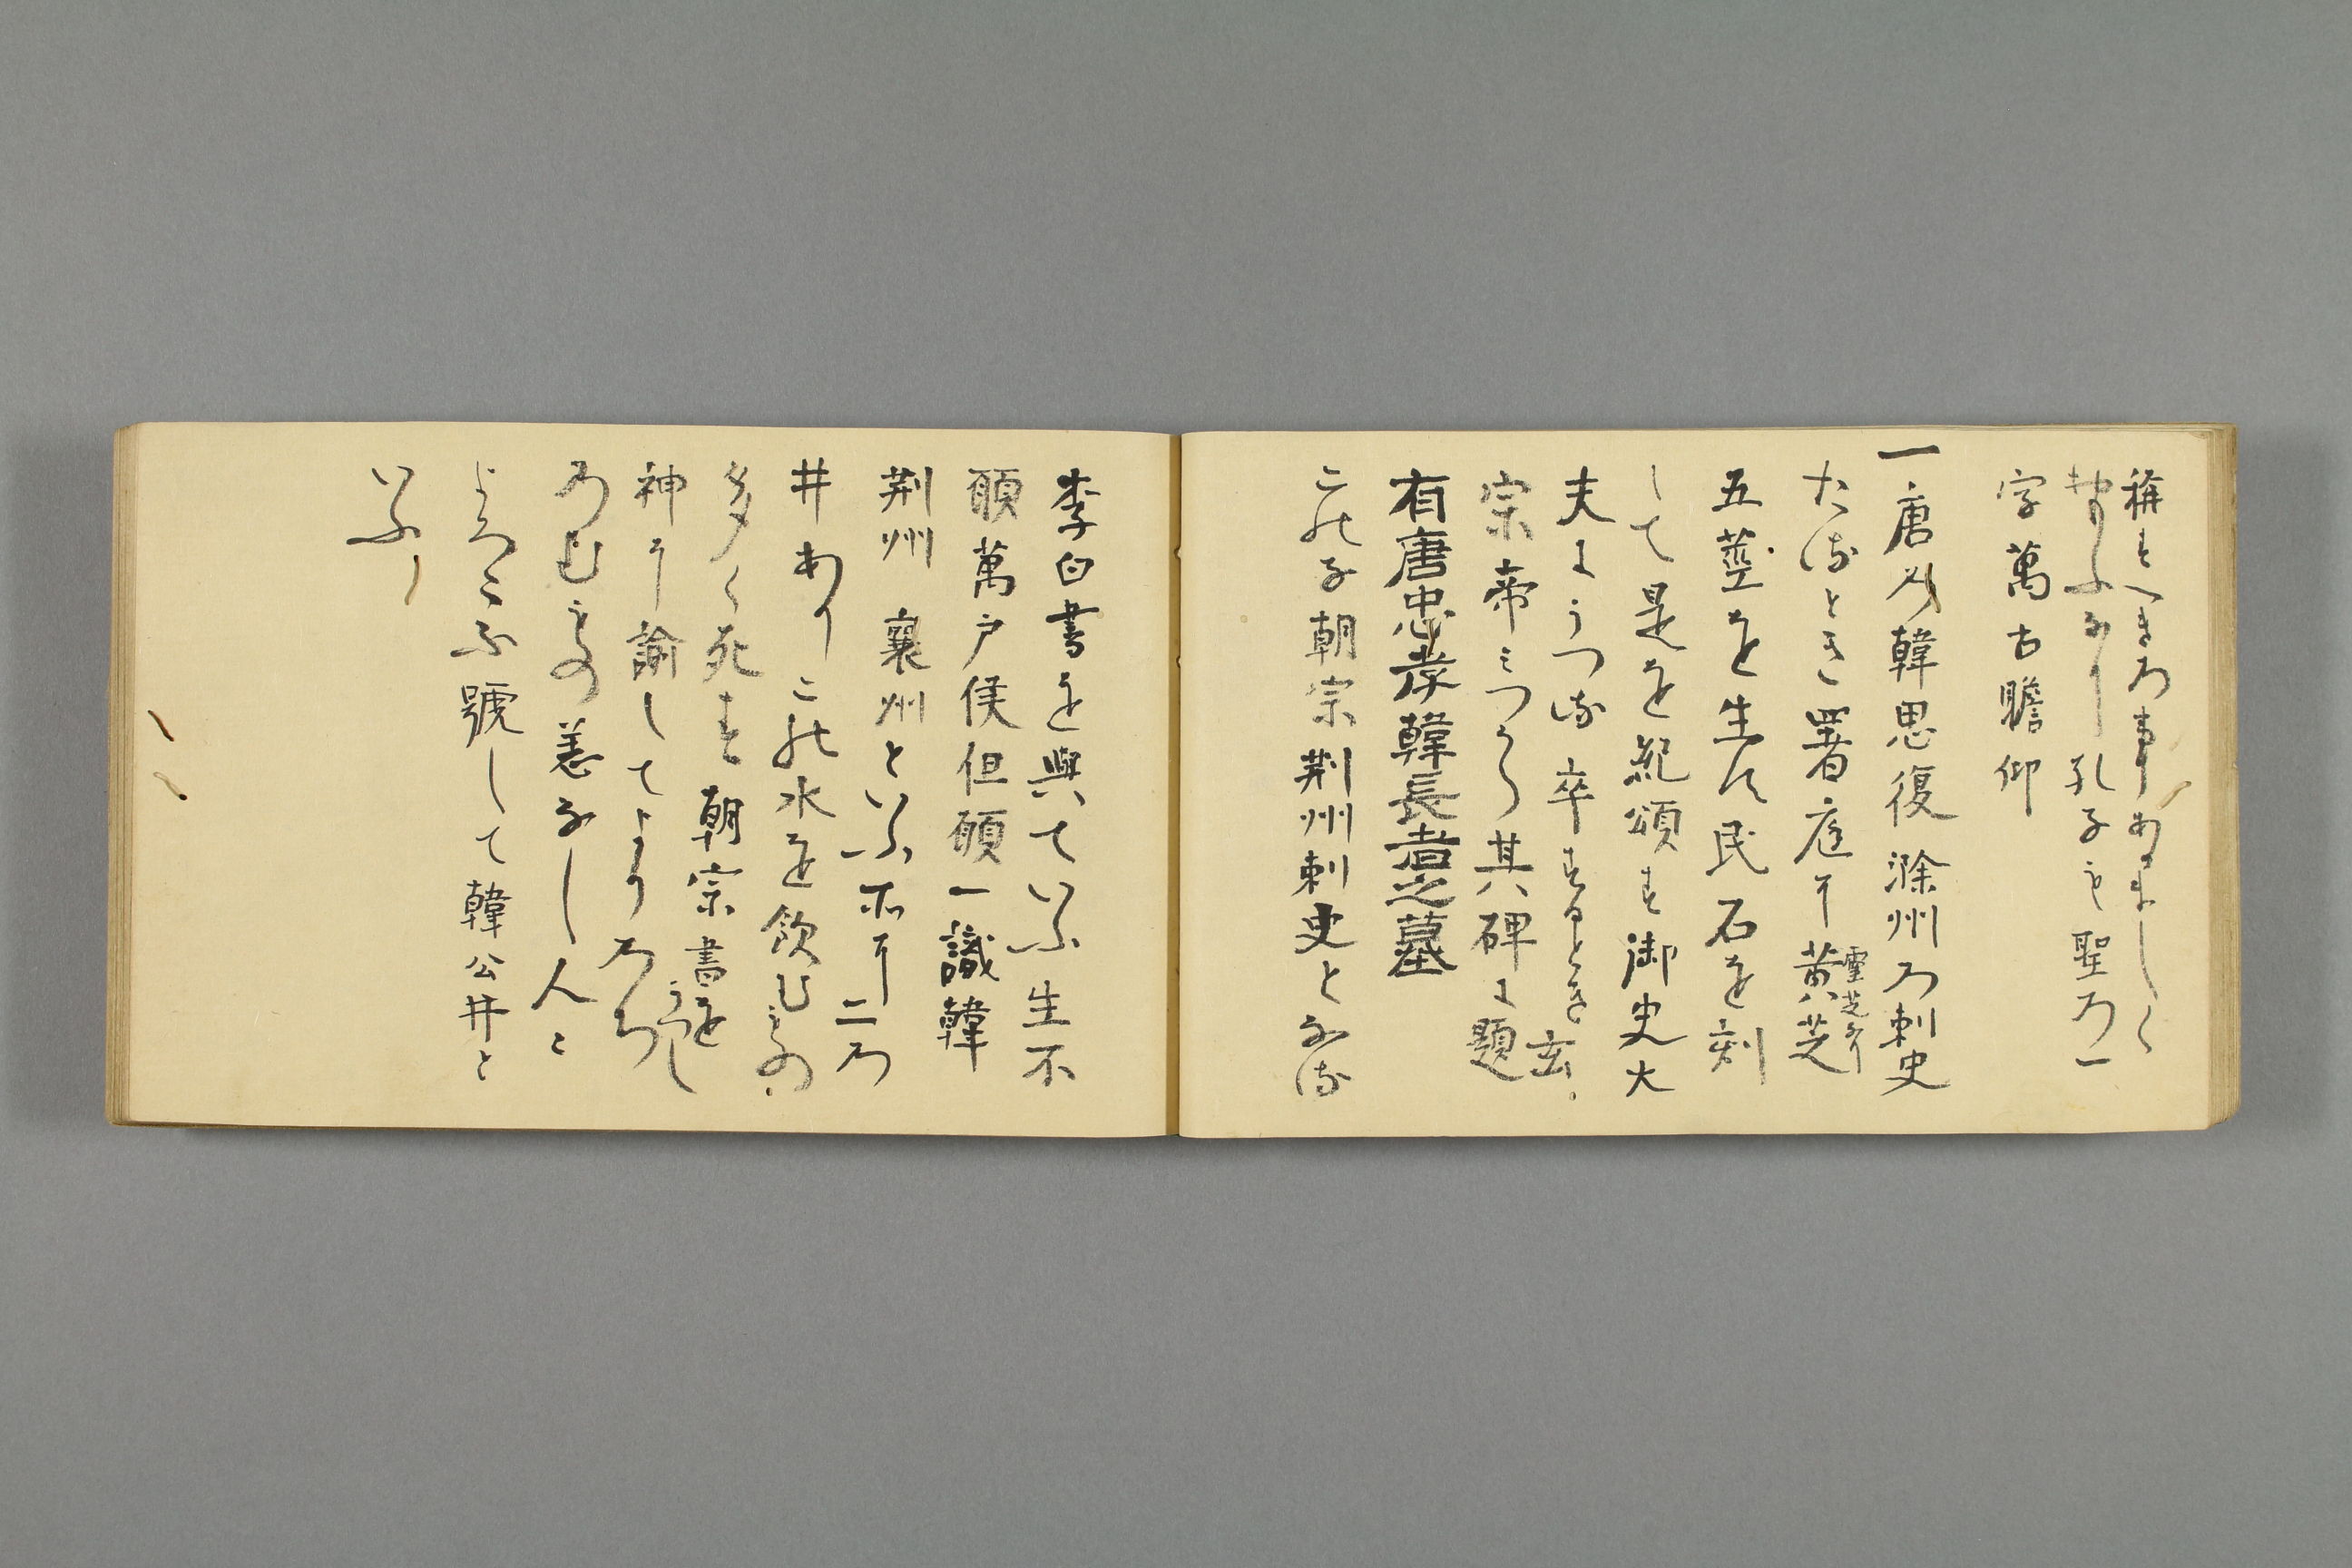 稱すへきの事あまし〳〵
せりふなり孔子も聖の一
字萬古瞻仰
一唐の韓思復滁州の刺史
たるとき署庭に黄芝
霊芝ナリ
五莖を生ス民石を刻
して是を紀頌す御史大
夫にうつる卒するとき玄
宗帝みつから其碑に題
有唐忠孝韓長者之墓
この子朝宗荆州刺史となる
李白書を與ていふ生不
願萬戸侯但願一識韓
荆州 襄州といふ所に二の
井ありこの水を飲むもの
多く死す朝宗書をうつし
神に諭してよりのち
のむもの恙なし人こ
よろこふ號して韓公井と
いふ